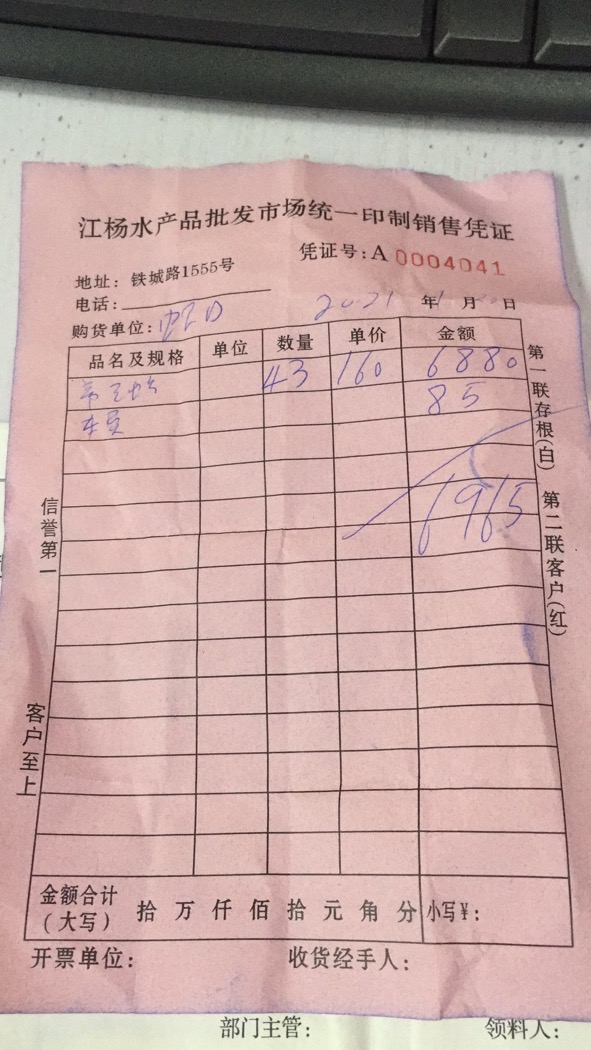 江杨水产品批发市场统一印制销售凭证
凭证号: A 0004041
地址: 铁城路1555号
电话:
2021 年 1 月 日
购货单位:
品名及规格 单位 数量 单价 金额
43 160 6880
车费 85
6965
第一联存根(白)
第二联客户(红)
信誉第一
客户至上
金额合计(大写) 拾 万 仟 佰 拾 元 角 分 小写¥:
开票单位: 收货经手人:
部门主管: 领料人: